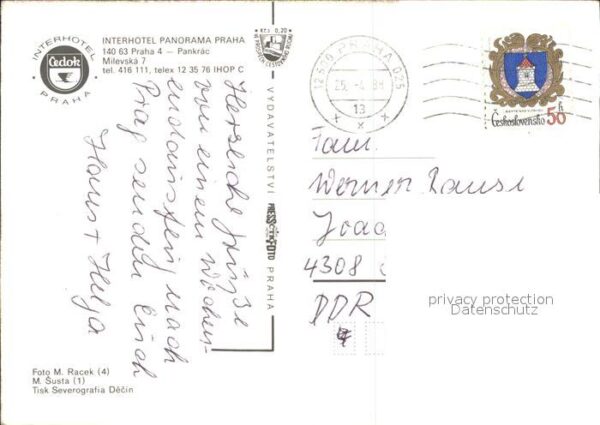 INTERHOTEL
Čedok
PRAHA
INTERHOTEL PANORAMA PRAHA
140 63 Praha 4 – Pankrác
Milevská 7
tel. 416 111, telex 12 35 76 IHOP C
Herzliche Grüße
von einem Wochen-
endausflug nach
Prag senden Euch
Hans + Helga
Foto M. Racek (4)
M. Šusta (1)
Tisk Severografia Děčín
Kčs 0,20
VYDAVATELSTVÍ
PRESSFOTO
PRAHA
PRAHA 025
13
Československo 50 h
Fam.
Werner
4308
DDR
privacy protection
Datenschutz